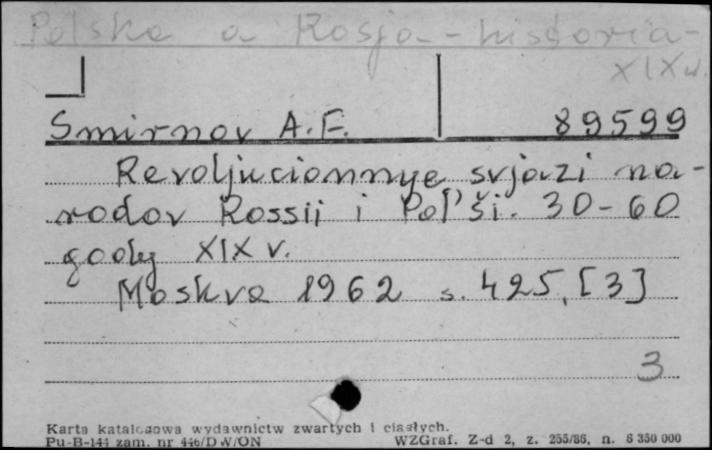 Polska a Rosja - historia -
XIX w.
Smirnov A.F. 89599
Revoljucionnye svjazi na-
rodov Rossii i Pol'ši. 30-60
gody XIX v.
Moskva 1962 s. 425, [3]
3
Karta katalogowa wydawnictw zwartych i ciągłych.
Pu-B-144 zam. nr 446/DW/ON WZGraf. Z-d 2, z. 255/86, n. 6 350 000